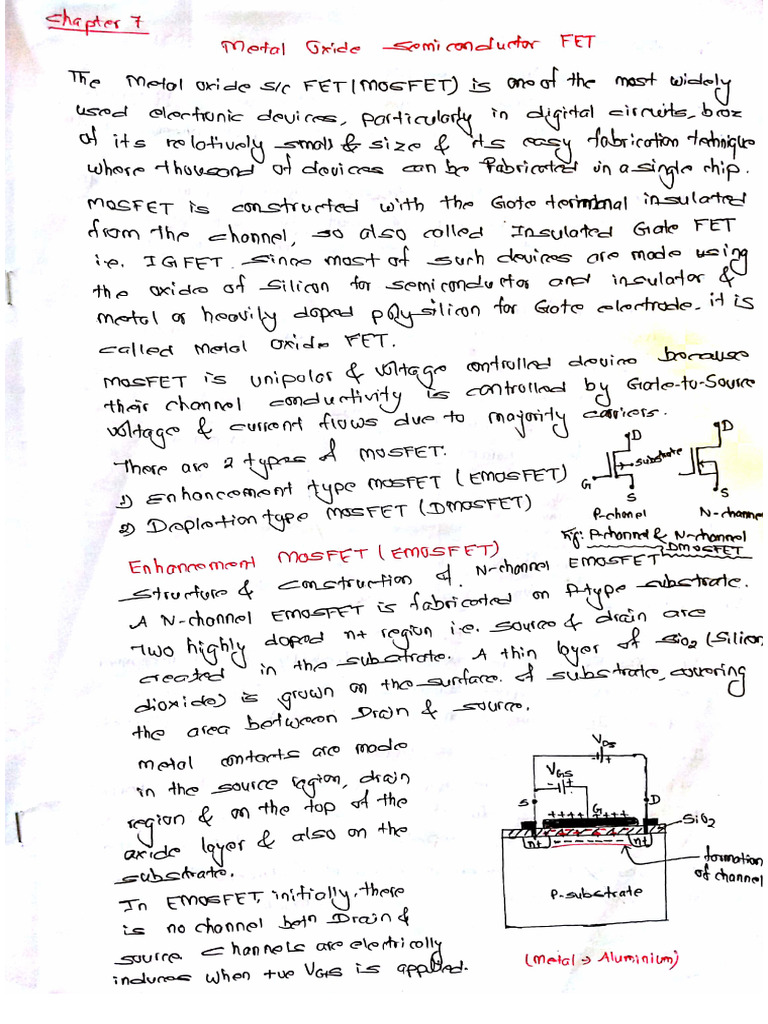 Chapter 7
Metal Oxide Semiconductor FET
The Metal oxide s/c FET (MOSFET) is one of the most widely
used electronic devices, particularly in digital circuits, bcoz
of its relatively small & size & its easy fabrication technique
where thousand of devices can be fabricated in a single chip.
MOSFET is constructed with the Gate terminal insulated
from the channel, so also called Insulated Gate FET
i.e. IGFET. Since most of such devices are made using
the oxide of silicon for semiconductor and insulator &
metal or heavily doped polysilicon for Gate electrode. it is
called Metal Oxide FET.
MOSFET is unipolar & voltage controlled device because
their channel conductivity is controlled by Gate-to-Source
voltage & current flows due to majority carriers.
There are 2 types of MOSFET:
1) Enhancement type MOSFET (EMOSFET)
2) Depletion type MOSFET (DMOSFET)
D
substrate
G
S
P-chanel
D
S
N-channel
Fig: P-channel & N-channel
DMOSFET
Enhancement MOSFET (EMOSFET)
Structure & construction of N-channel EMOSFET
A N-channel EMOSFET is fabricated on P-type substrate.
Two highly doped n+ region i.e. source & drain are
created in the substrate. A thin layer of SiO2 (Silicon
dioxide) is grown on the surface of substrate, covering
the area between Drain & source.
Metal contacts are made
in the source region, drain
region & on the top of the
oxide layer & also on the
substrate.
In EMOSFET, initially, there
is no channel betn Drain &
source. Channels are electrically
induces when +ve VGS is applied.
VDS
VGS
S
G
D
++++ ++++
SiO2
n+
n+
formation
of channel
P-substrate
(Metal → Aluminium)